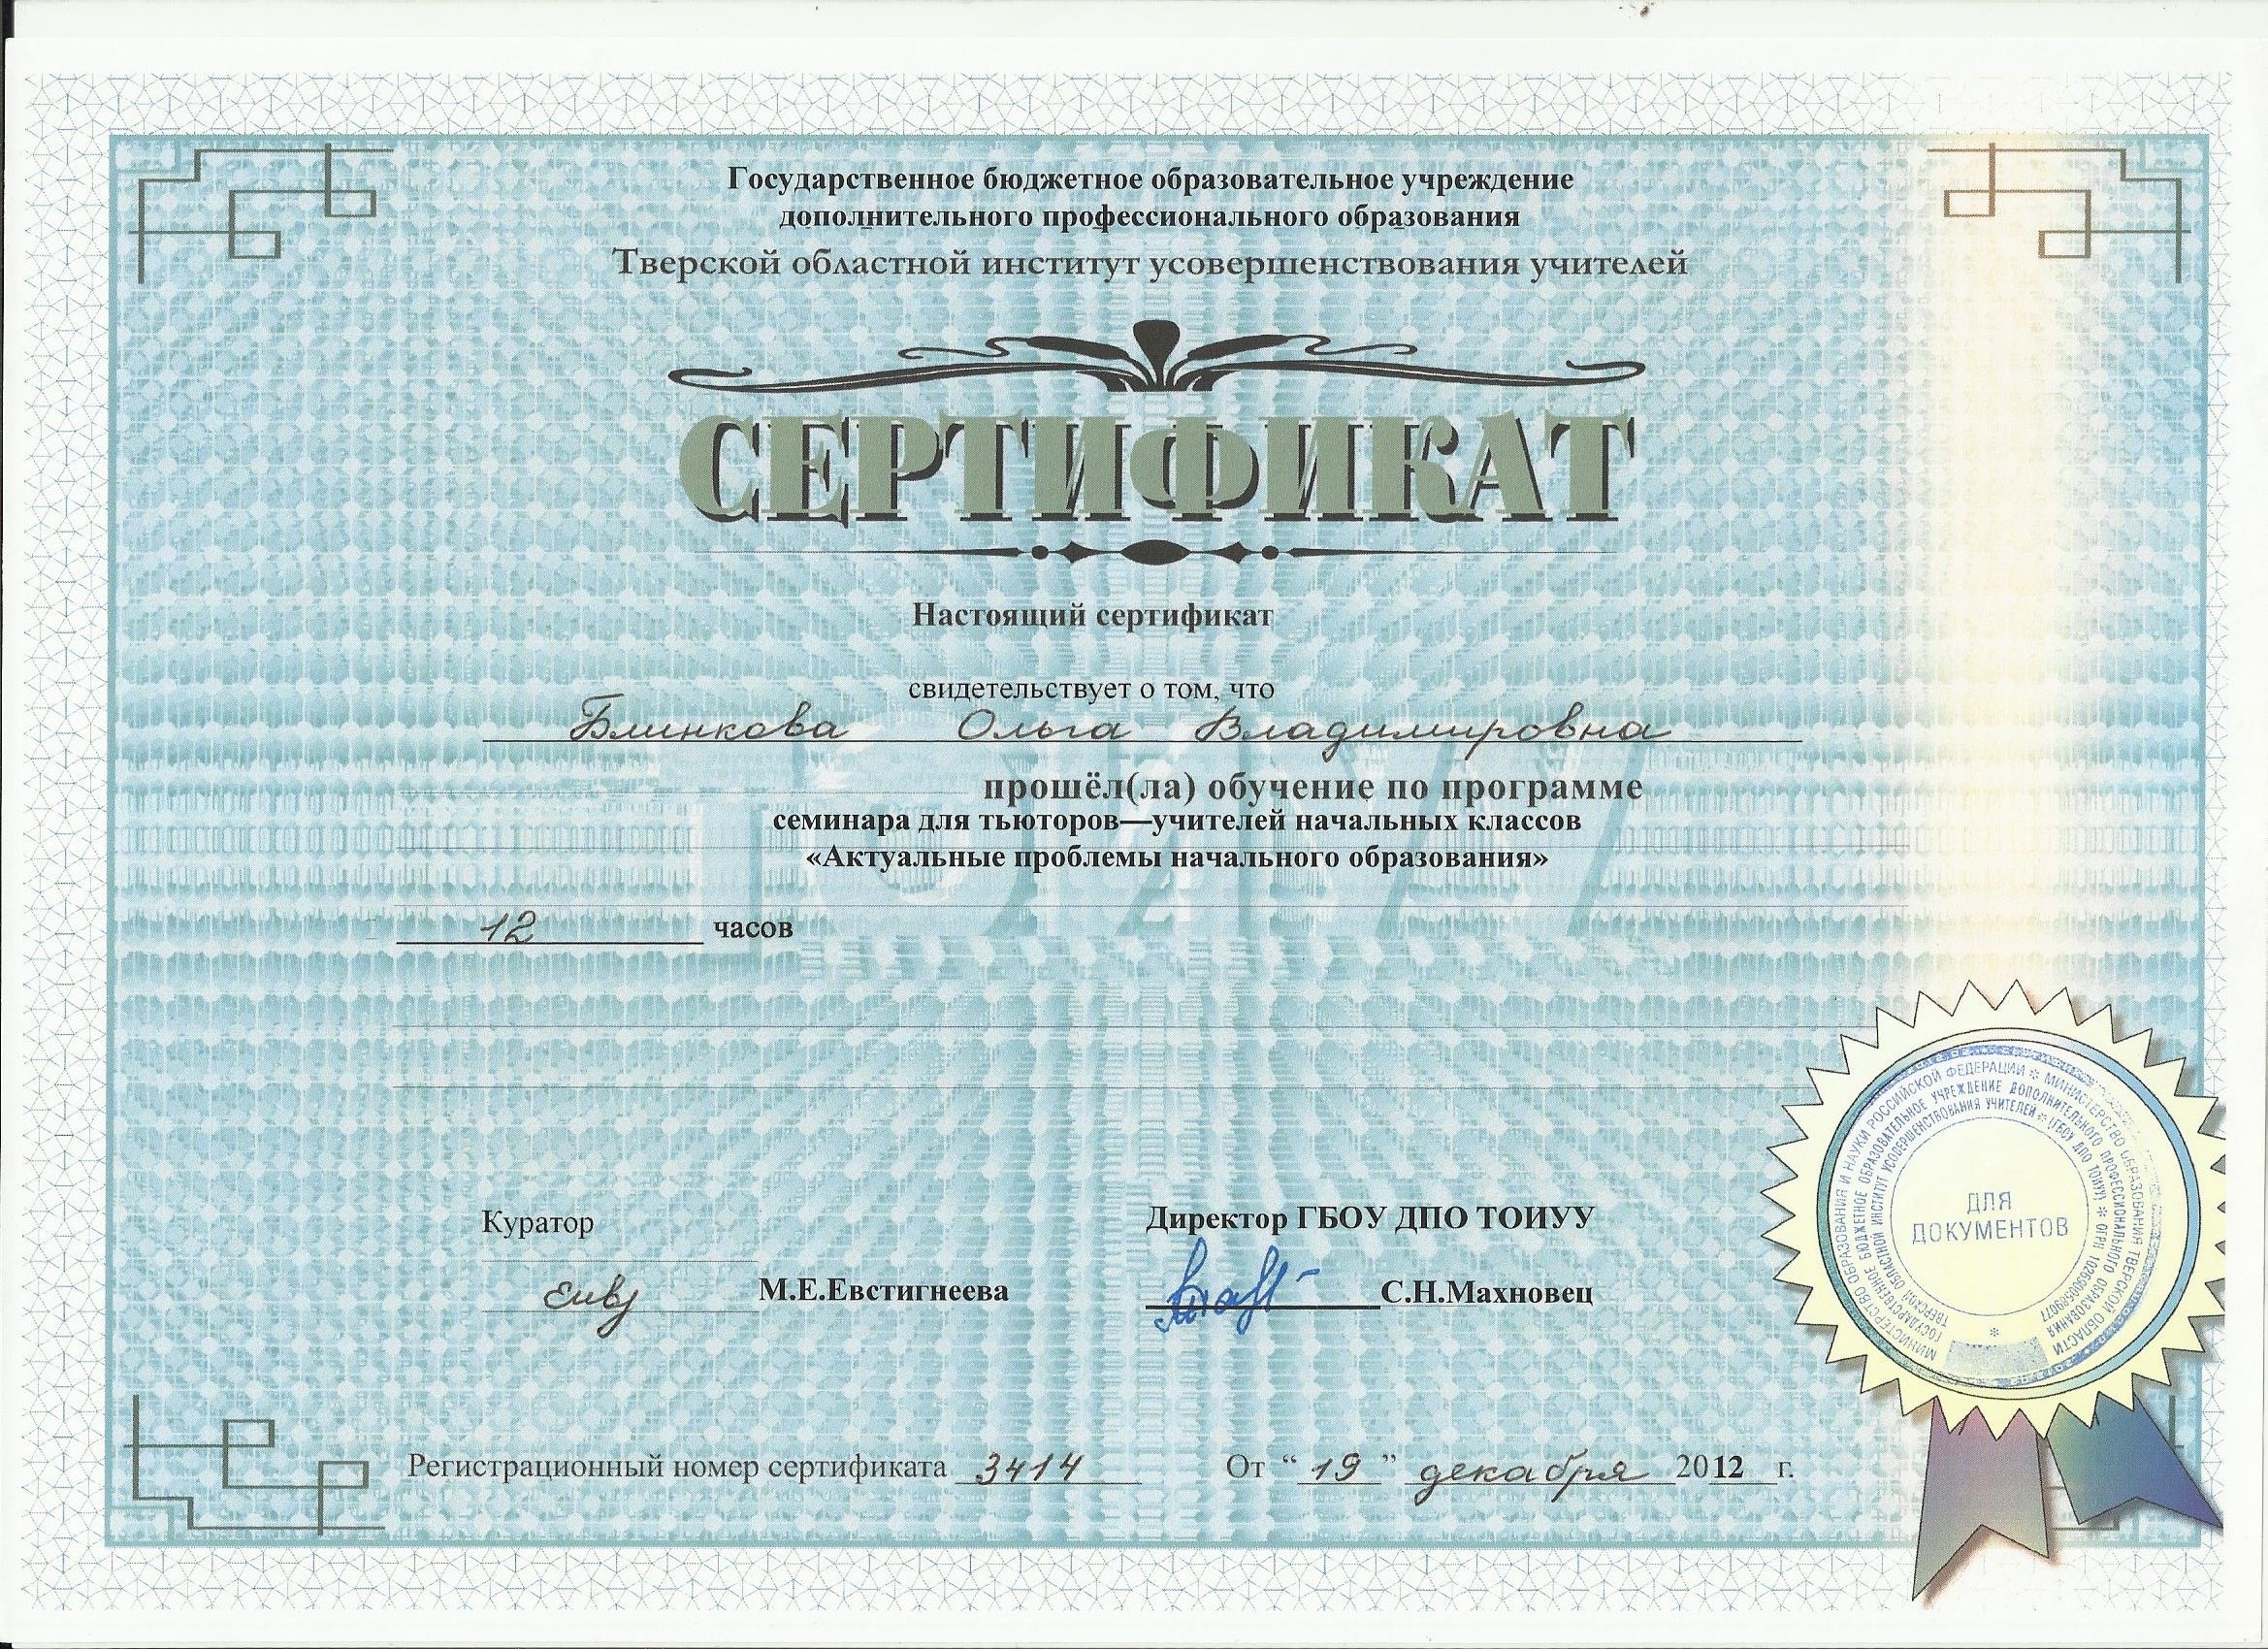 Государственное бюджетное образовательное учреждение
дополнительного профессионального образования
Тверской областной институт усовершенствования учителей
СЕРТИФИКАТ
Настоящий сертификат
свидетельствует о том, что
Блинкова Ольга Владимировна
прошёл(ла) обучение по программе
семинара для тьюторов—учителей начальных классов
«Актуальные проблемы начального образования»
12 часов
Куратор
Директор ГБОУ ДПО ТОИУУ
М.Е.Евстигнеева
С.Н.Махновец
Регистрационный номер сертификата 3414 От “ 19 ” декабря 2012 г.
МИНИСТЕРСТВО ОБРАЗОВАНИЯ И НАУКИ РОССИЙСКОЙ ФЕДЕРАЦИИ * МИНИСТЕРСТВО ОБРАЗОВАНИЯ ТВЕРСКОЙ ОБЛАСТИ
ГОСУДАРСТВЕННОЕ БЮДЖЕТНОЕ ОБРАЗОВАТЕЛЬНОЕ УЧРЕЖДЕНИЕ ДОПОЛНИТЕЛЬНОГО ПРОФЕССИОНАЛЬНОГО ОБРАЗОВАНИЯ
ТВЕРСКОЙ ОБЛАСТНОЙ ИНСТИТУТ УСОВЕРШЕНСТВОВАНИЯ УЧИТЕЛЕЙ * (ГБОУ ДПО ТОИУУ) * ОГРН
ДЛЯ
ДОКУМЕНТОВ